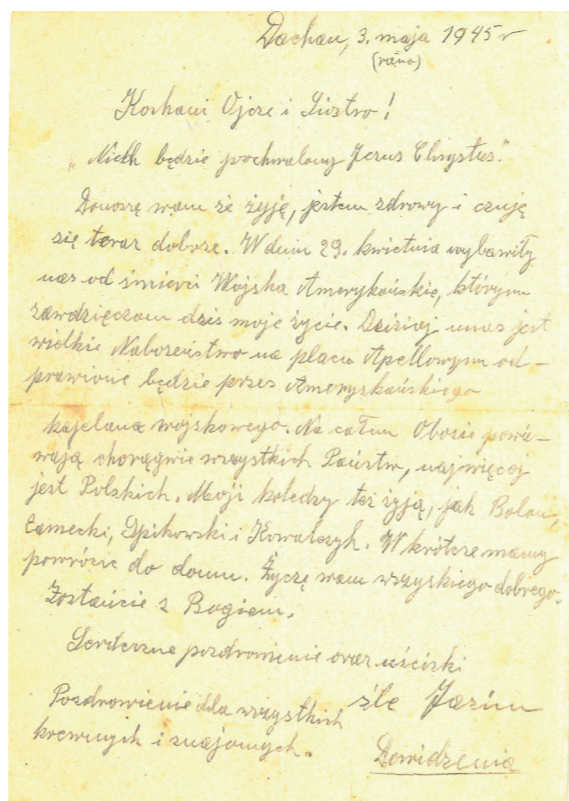 Dachau, 3. maja 1945 r
(rano)
Kochani Ojcze i Siostro!
"Niech będzie pochwalony Jezus Chrystus."
Donoszę wam że żyję, jestem zdrowy i czuję
się teraz dobrze. W dniu 29. kwietnia wybawiły
nas od śmierci Wojska Amerykańskie, którym
zawdzięczam dziś moje życie. Dzisiaj u nas jest
wielkie Nabożeństwo na placu Apellowym od-
prawione będzie przes Ameryskańskiego
kapelana wojskowego. Na całem Obozie powie-
wają chorągwie wszystkich Państw, najwięcej
jest Polskich. Moji koledzy też żyją, jak Bolon,
Łamecki, Spikowski i Kowalczyk. W krótcze mamy
powrócić do domu. Życzę wam wszyskiego dobrego.
Zostańcie z Bogiem.
Serdeczne pozdrowienie oraz uściski
śle
Pozdrowienie dla wszystkich
krewnych i znajomych.
Dowidzenia